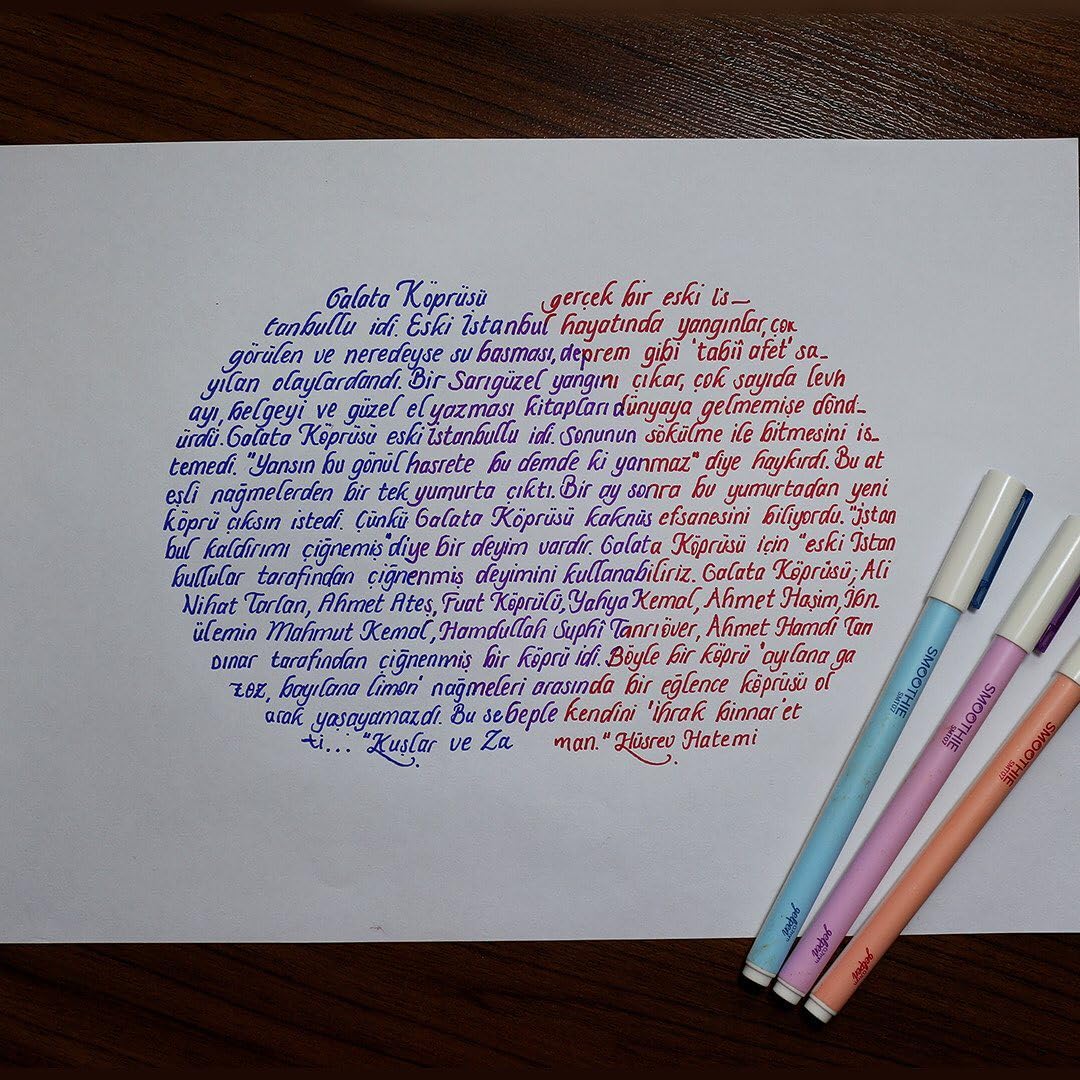 Galata Köprüsü gerçek bir eski İs_
tanbullu idi. Eski İstanbul hayatında yangınlar, çok
görülen ve neredeyse su basması, deprem gibi 'tabiî afet' sa_
yılan olaylardandı. Bir Sarıgüzel yangını çıkar, çok sayıda levh
ayı, belgeyi ve güzel el yazması kitapları dünyaya gelmemişe dönd_
ürdü. Galata Köprüsü eski İstanbullu idi. Sonunun sökülme ile bitmesini is_
temedi. "Yansın bu gönül hasrete bu demde ki yanmaz" diye haykırdı. Bu at
eşli nağmelerden bir tek yumurta çıktı. Bir ay sonra bu yumurtadan yeni
köprü çıksın istedi. Çünkü Galata Köprüsü kaknüs efsanesini biliyordu. "İstan
bul kaldırımı çiğnemiş" diye bir deyim vardır. Galata Köprüsü için "eski İstan
bullular tarafından çiğnenmiş deyimini kullanabiliriz. Galata Köprüsü; Ali
Nihat Tarlan, Ahmet Ateş, Fuat Köprülü, Yahya Kemal, Ahmet Haşim, İbn.
ülemin Mahmut Kemal, Hamdullah Suphi Tanrıöver, Ahmet Hamdi Tan
pınar tarafından çiğnenmiş bir köprü idi. Böyle bir köprü 'ayılana ga
zoz, bayılana limon' nağmeleri arasında bir eğlence köprüsü ol
arak yaşayamazdı. Bu sebeple kendini 'ihrak binnar' et
ti... "Kuşlar ve Za man." Hüsrev Hatemi
SMOOTHIE
SMT07
SMOOTHIE
SMT07
SMOOTHIE
SMT07